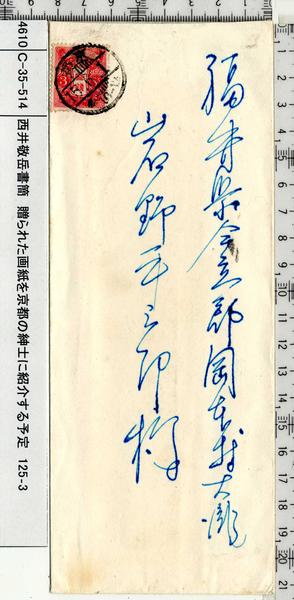 福井県今立郡岡本村大瀧
岩野平三郎様
4610 C-35-514 西井敬岳書簡 贈られた画紙を京都の紳士に紹介する予定 125-3